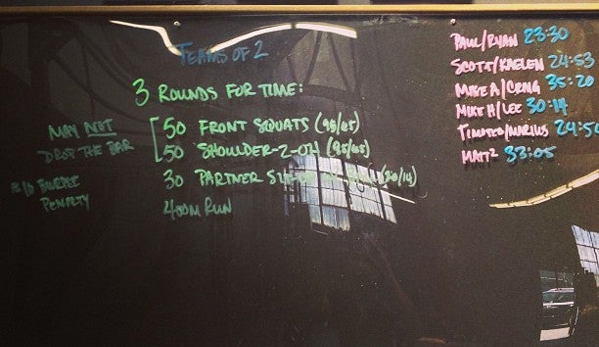 TEAMS OF 2
3 ROUNDS FOR TIME:
MAY NOT
DROP THE BAR
50 FRONT SQUATS (95/65)
50 SHOULDER-2-OH (95/65)
30 PARTNER
BURPEE
PENALTY
400M RUN
PAUL/RYAN 23:30
SCOTT/KAELEN 24:53
MIKE A/CRAIG 35:20
MIKE H/LEE 30:14
TIMOTEO/MARIUS 24:50
MATT² 33:05